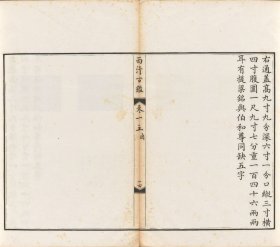 右通蓋高九寸九分深六寸一分口縱三寸橫
四寸腹圍一尺九寸七分重一百四十六兩兩
耳有提梁銘與伯和尊同缺五字
西清古鑑
卷十五